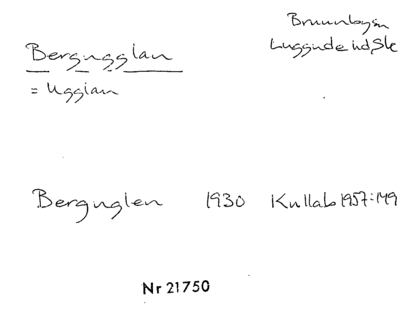 Bergugglan
Brunnbysn
Luggude hd, Sk
= Ugglan
Berguglen 1930 Kullab 1957:149
Nr 21750